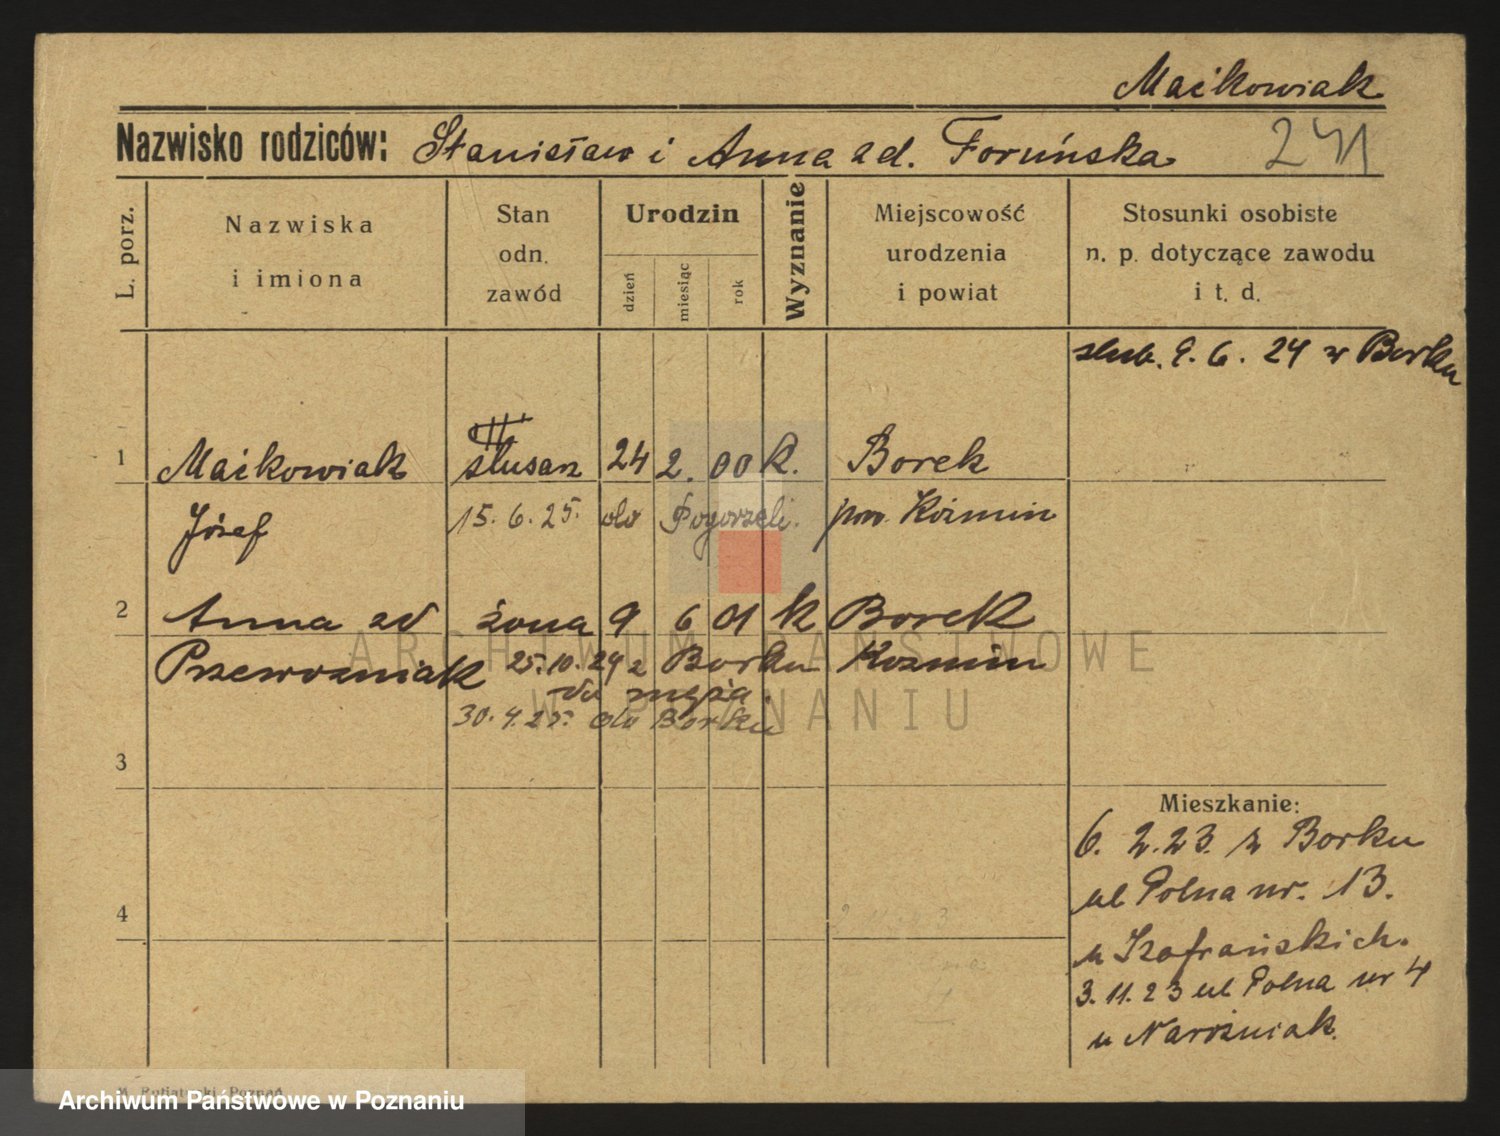 Maćkowiak
Nazwisko rodziców: Stanisław i Anna zd. Toruńska 241
L. porz.
Nazwiska
i imiona
Stan
odn.
zawód
Urodzin
dzień
miesiąc
rok
Wyznanie
Miejscowość
urodzenia
i powiat
Stosunki osobiste
n. p. dotyczące zawodu
i t. d.
ślub. 9. 6. 24 w Borku
1 Maćkowiak ślusarz 24 2. 00 k. Borek
Józef 15. 6. 25. do Pogorzeli. pow. Koźmin
2 Anna zd żona 9 6 01 k Borek
Przewoźniak 25.10.24 z Borku Koźmin
do męża.
30.4.25. do Borku
3
4
Mieszkanie:
6. 2.23. z Borku
ul Polna nr. 13.
u Szafrańskich.
3.11.23 ul Polna nr 4
u Naroźniak.
ARCHIWUM PAŃSTWOWE
W POZNANIU
Poznań
Archiwum Państwowe w Poznaniu